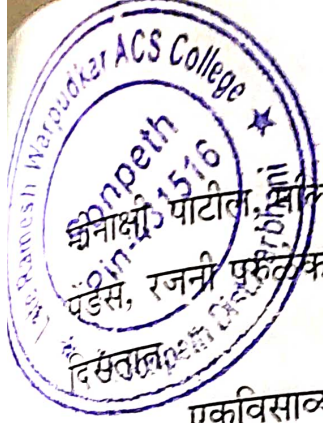 Late Ramesh Warpudkar ACS College
Sonpeth
Pin-431516
Sonpeth Dist. Parbhani
मीनाक्षी पाटील,
पंडित, रजनी परुळेक
दिसतात.
एकविसाव्